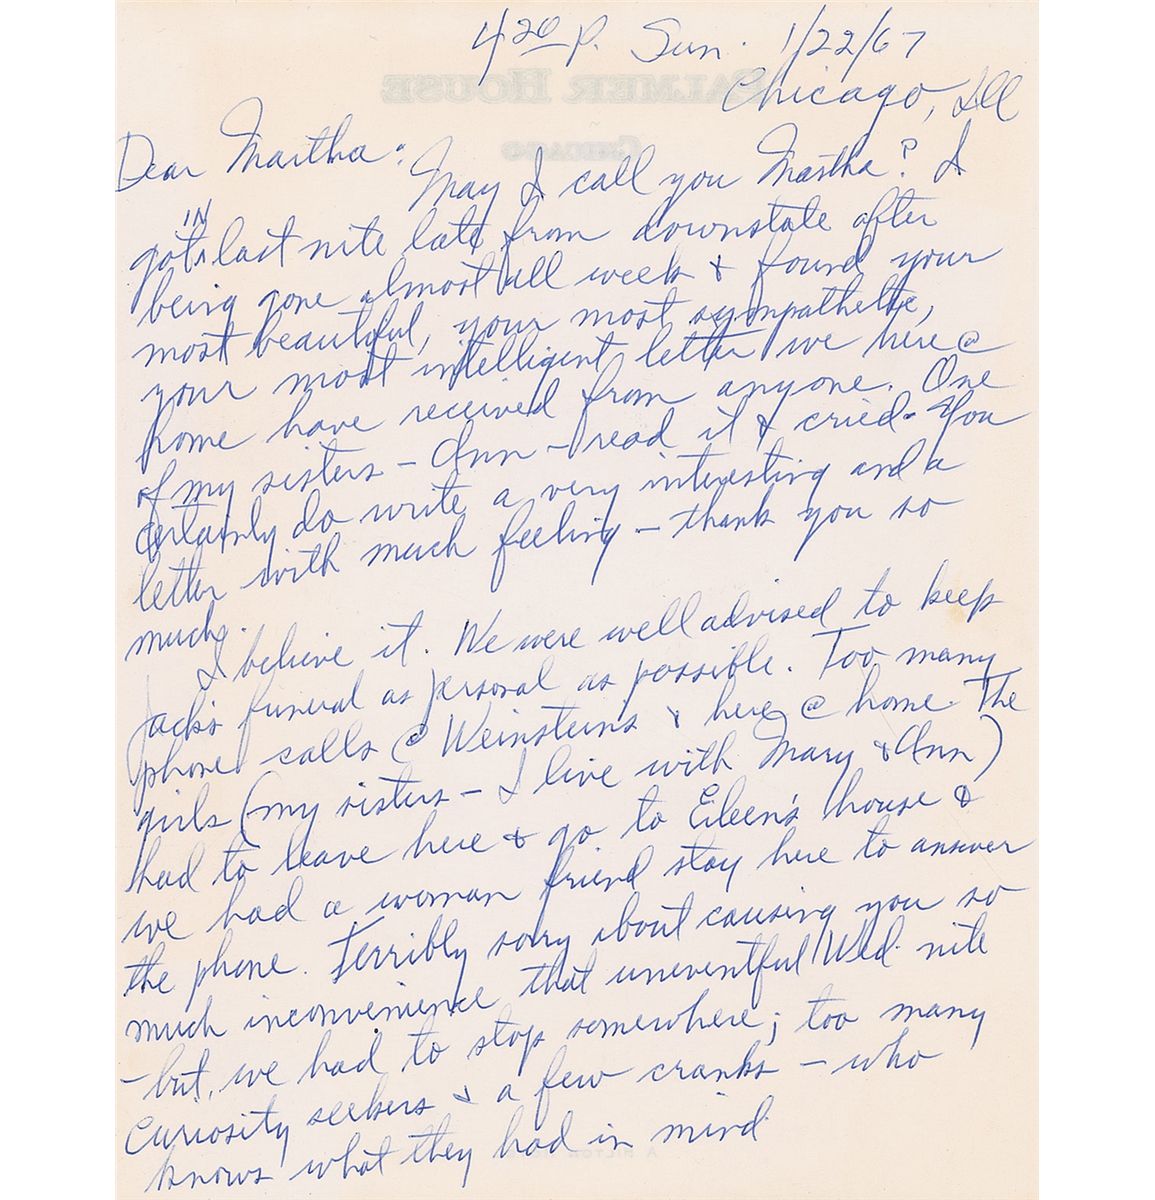 4 20 P. Sun. 1/22/67
PALMER HOUSE
Chicago, Ill
CHICAGO
Dear Martha:
May I call you Martha? I
got IN last nite late from downstate after
being gone almost all week & found your
most beautiful, your most sympathetic,
your most intelligent letter we here @
home have received from anyone. One
of my sisters - Ann - read it & cried - You
certainly do write a very interesting and a
letter with much feeling - thank you so
much.
I believe it. We were well advised to keep
Jack's funeral as personal as possible. Too many
phone calls @ Weinsteins & here @ home. The
girls (my sisters - I live with Mary & Ann)
had to leave here & go to Eileen's house &
we had a woman friend stay here to answer
the phone. Terribly sorry about causing you so
much inconvenience that uneventful Wed. nite
- but, we had to stop somewhere; too many
curiosity seekers & a few cranks - who
knows what they had in mind.
A HILTON